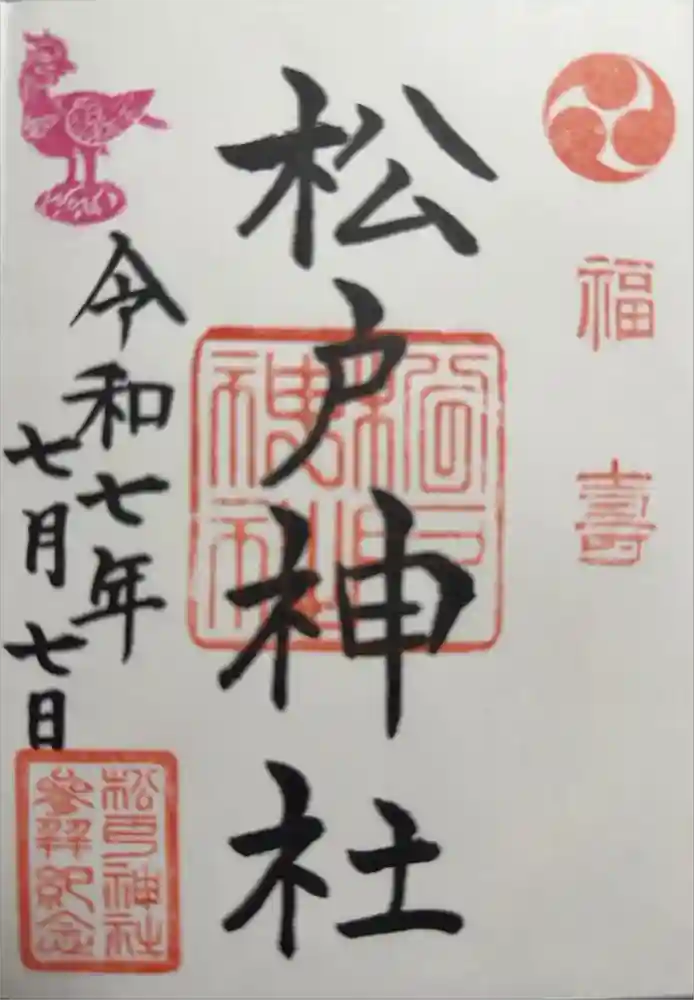 福壽
松戸神社
松戸神社
令和七年
七月七日
松戸神社
参拝紀念